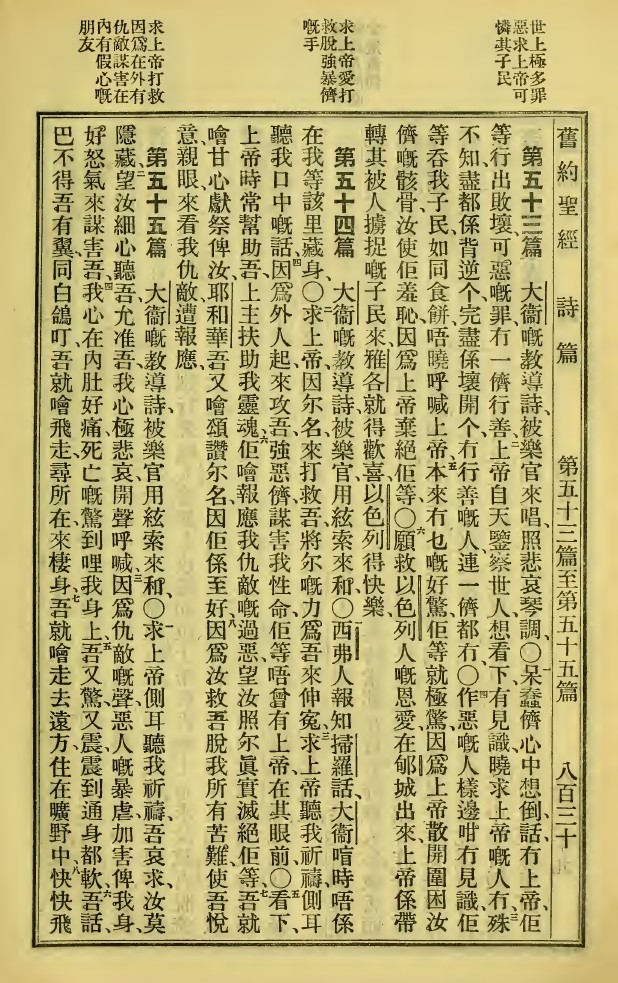 世上極多罪
惡求上帝可
憐其子民
求上帝愛打
救脫強暴儕
嘅手
求上帝打救
因爲在外有
仇敵謀害在
內有假心嘅
朋友
舊約聖經 詩篇 第五十三篇至第五十五篇 八百三十
第五十三篇 大衞嘅教導詩、被樂官來唱、照悲哀琴調、〇一呆蠢儕心中想倒、話冇上帝、佢
等行出敗壞、可惡嘅罪、冇一儕行善、二上帝自天鑒察世人、想看下、有見識曉求上帝嘅人冇、三殊
不知盡都係背逆个、完盡係壞開个、冇行善嘅人、連一儕都冇、〇四作惡嘅人、樣邊咁冇見識、佢
等吞我子民、如同食餅、唔曉呼喊上帝、五本來冇乜嘅好驚、佢等就極驚、因爲上帝散開圍困汝
儕嘅骸骨、汝使佢羞恥、因爲上帝棄絕佢等、〇六願救以色列人嘅恩愛、在郇城出來、上帝係帶
轉其被人擄捉嘅子民來、雅各就得歡喜、以色列得快樂、
第五十四篇 大衞嘅教導詩、被樂官用絃索來和、〇西弗人報知掃羅話、大衞唶時唔係
在我等該里藏身、〇一求上帝因尔名來打救吾、將尔嘅力爲吾來伸寃、二求上帝聽我祈禱、側耳
聽我口中嘅話、三因爲外人起來攻吾、強惡儕謀害我性命、佢等唔曾有上帝在其眼前、〇四看下
上帝時常幫助吾、上主扶助我靈魂、五佢噲報應我仇敵嘅過惡、望汝照尔眞實滅絕佢等、六吾就
噲甘心獻祭俾汝、耶和華、吾又噲頌讚尔名、因佢係至好、七因爲汝救吾脫我所有苦難、使吾悅
意親眼來看我仇敵遭報應、
第五十五篇 大衞嘅教導詩、被樂官用絃索來和、〇一求上帝側耳聽我祈禱、吾哀求汝莫
隱藏、二望汝細心聽吾、允准吾、我心極悲哀、開聲呼喊、三因爲仇敵嘅聲、惡人嘅暴虐、加害俾我身、
好怒氣來謀害吾、四我心在內肚好痛、死亡嘅驚到哩我身上、五吾又驚、又震、震到通身都軟、六吾話、
巴不得吾有翼、同白鴿叮、吾就噲飛走、尋所在來棲身、七吾就噲走去遠方、住在曠野中、八快快飛